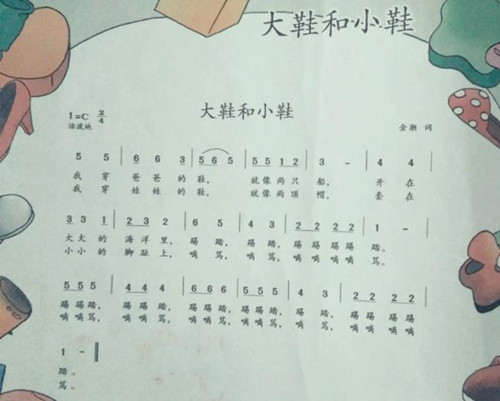 大鞋和小鞋
大鞋和小鞋
1=C 2/4
活泼地
金潮 词
5 5 | 6 6 3 | 5 6 5 | 5 5 1 2 | 3 - | 4 4 |
我 穿 爸 爸 的 鞋, 就 像 两 只 船, 开 在
我 穿 娃 娃 的 鞋, 就 像 两 顶 帽, 套 在
3 3 1 | 2 3 2 | 6 5 | 4 3 | 2 2 2 2 | 1 - |
大 大 的 海 洋 里, 踢 踏, 踢 踏, 踢踢 踢踢 踏。
小 小 的 脚 趾 上, 嘀 笃, 嘀 笃, 嘀嘀 嘀嘀 笃。
5 5 5 | 4 4 4 | 6 6 6 | 5 5 5 | 4 3 | 2 2 2 2 |
踢踢踏, 踢踢踏, 踢踢踏, 踢踢踏, 踢 踏, 踢踢 踢踢
嘀嘀笃, 嘀嘀笃, 嘀嘀笃, 嘀嘀笃, 嘀 笃, 嘀嘀 嘀嘀
1 - ‖
踏。
笃。